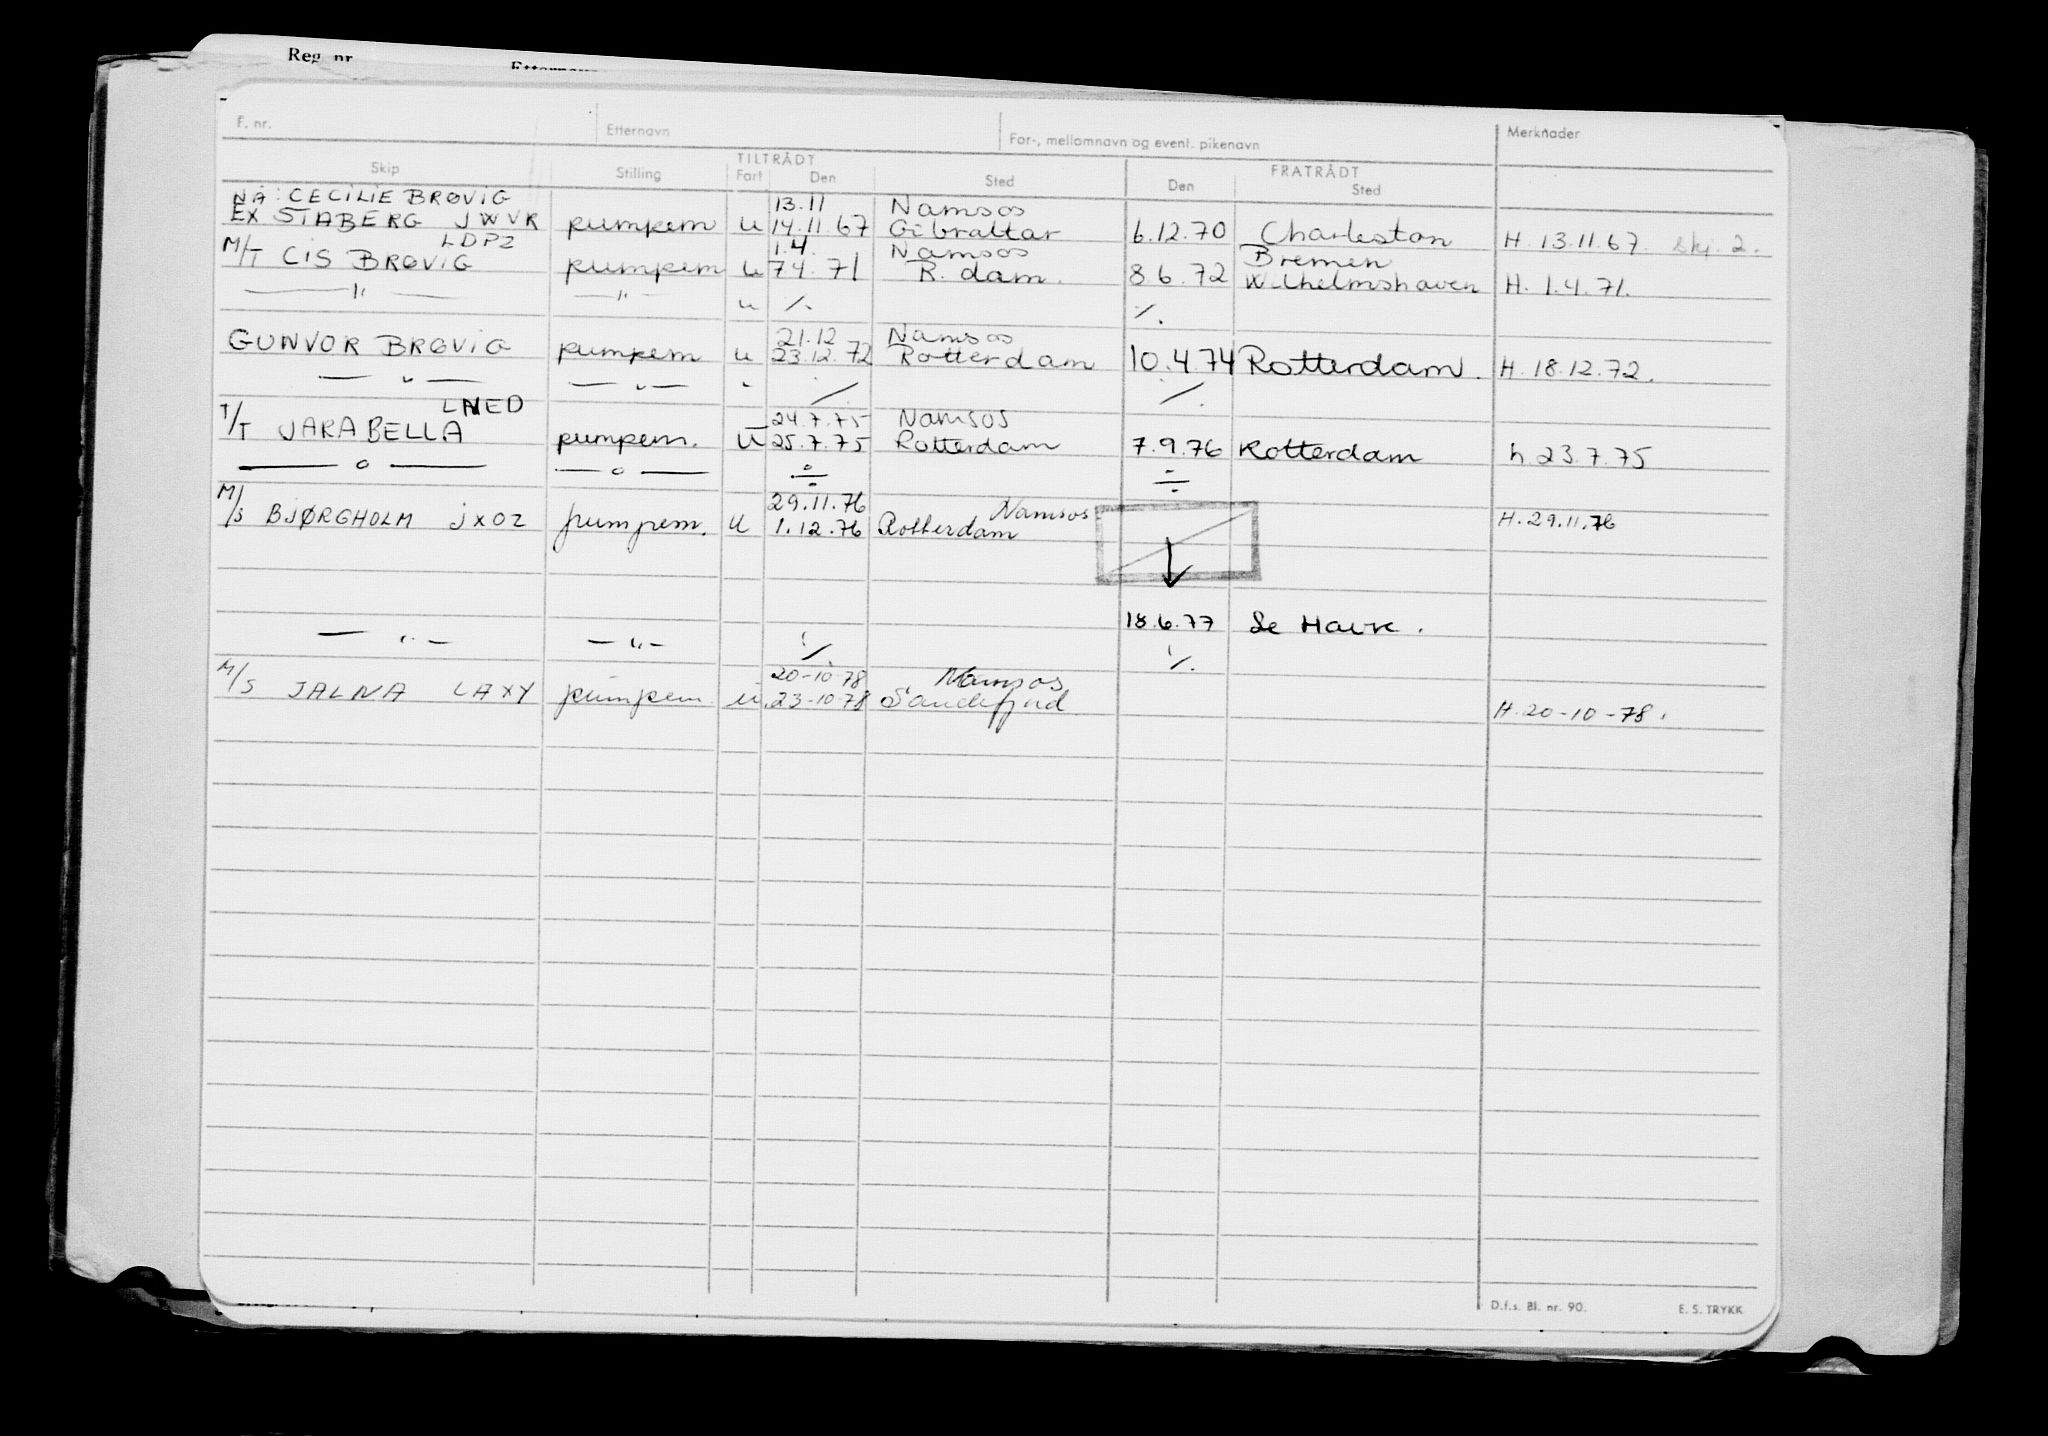 Reg. nr.
F. nr. Etternavn For-, mellomnavn og event. pikenavn Merknader
TILTRÅDT FRATRÅDT
Skip Stilling Fart Den Sted Den Sted
NÅ: CECILIE BRØVIG 13.11 Namsos
EX STABERG JWVR pumpem u 14.11.67 Gibraltar 6.12.70 Charleston H. 13.11.67. skj. 2.
LDPZ 1.4. Namsos Bremen
M/T CIS BRØVIG pumpem u 74. 71 R. dam. 8.6.72 Wilhelmshaven H. 1.4.71.
— " — — " — u ·/. ·/.
21.12 Namsos
GUNVOR BRØVIG pumpem u 23.12.72 Rotterdam 10.4.74 Rotterdam. H. 18.12.72.
— " — — " — " ·/. ·/.
LNED 24.7.75 Namsos
T/T JARABELLA pumpem. u 25.7.75 Rotterdam 7.9.76 Rotterdam h. 23.7.75
— o — — o — ÷ ÷
29.11.76 Namsos
M/S BJØRGHOLM JXOZ pumpem. u 1.12.76 Rotterdam H. 29.11.76
18.6.77 Le Havre.
— " — — " — ·/. ·/.
20-10-78 Namsos
M/S JALNA LAXY pumpem u. 23-10-78 Sandefjord H. 20-10-78.
D.f.s. Bl. nr. 90. E. S. TRYKK